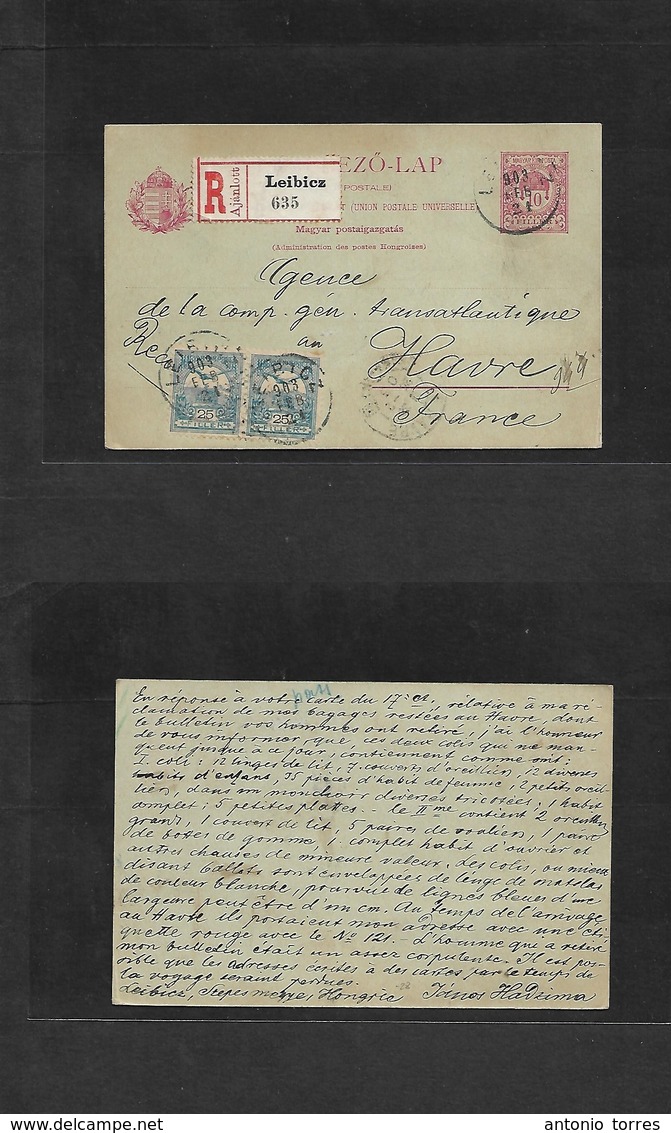 EZŐ-LAP
R Ajánlott Leibicz
635
POSTALE)
(UNION POSTALE UNIVERSELLE
Magyar postaigazgatás
(Administration des postes Hongroises)
MAGYAR KIR. POSTA
10
903
FEB
21
Agence
de la comp. gén. transatlantique
Rec. au Havre
France
903
FEB
21
903
FEB
25 25
FILLÉR FILLÉR
En réponse à votre carte du 17. ct, relative à ma ré-
clamation de mes bagages restées au Havre, dont
le bulletin vos hommes ont retiré, j'ai l'honneur
de vous informer que, ces deux colis qui me man-
quent jusque à ce jour, contiennent comme ont:
I. coli: 12 linges de lit, 7 couverts d'oreillier, 12 diverses
habits d'enfans, 35 pièces d'habit de femme, 2 petits oreil-
liers, dans un mouchoir diverses tricotées, 1 habit
complet; 5 petites plattes. le IIme contient 2 oreilliers
grands, 1 couvert de lit, 5 paires de souliers, 1 paire
de bottes de gomme, 1. complet habit d'ouvrier et
autres chauses de mineure valeur, des colis, ou mieux
disant ballots sont enveloppées de linge de matelas
de couleur blanche, pourvue de lignes bleues d'une
largeure peut être d'un cm. Au temps de l'arrivage
au Havre ils portaient mon adresse avec une éti-
quette rouge avec le No 121. - L'homme qui a retiré
mon bulletin était un assez corpulente. Il est pos-
sible que les adresses par le temps de
la voyage seraint perdues.
Leibicz, Szepes megye, Hongrie János Hadzima
www.delcampe.net antonio torres